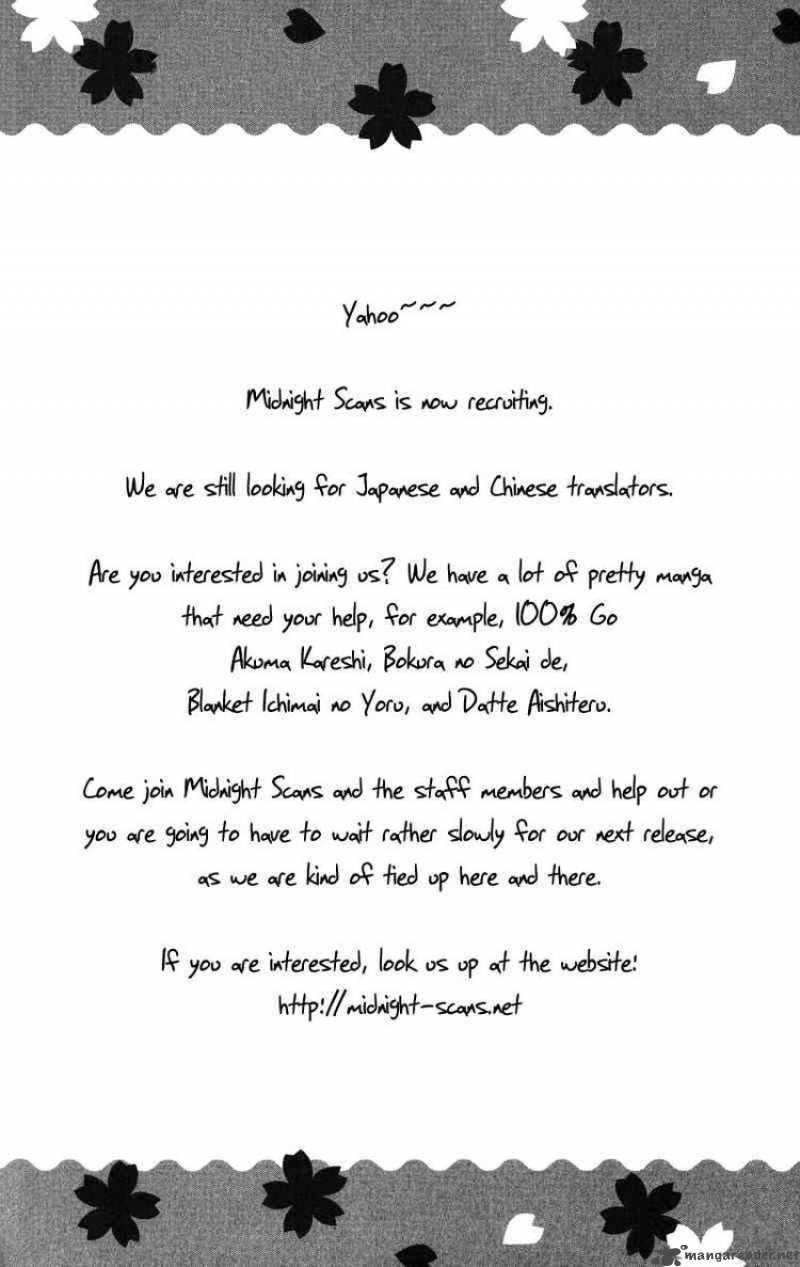 Yahoo~~~
Midnight Scans is now recruiting.
We are still looking for Japanese and Chinese translators.
Are you interested in joining us? We have a lot of pretty manga
that need your help, for example, 100% Go
Akuma Kareshi, Bokura no Sekai de,
Blanket Ichimai no Yoru, and Datte Aishiteru.
Come join Midnight Scans and the staff members and help out or
you are going to have to wait rather slowly for our next release,
as we are kind of tied up here and there.
If you are interested, look us up at the website!
http://midnight-scans.net
mangareader.net